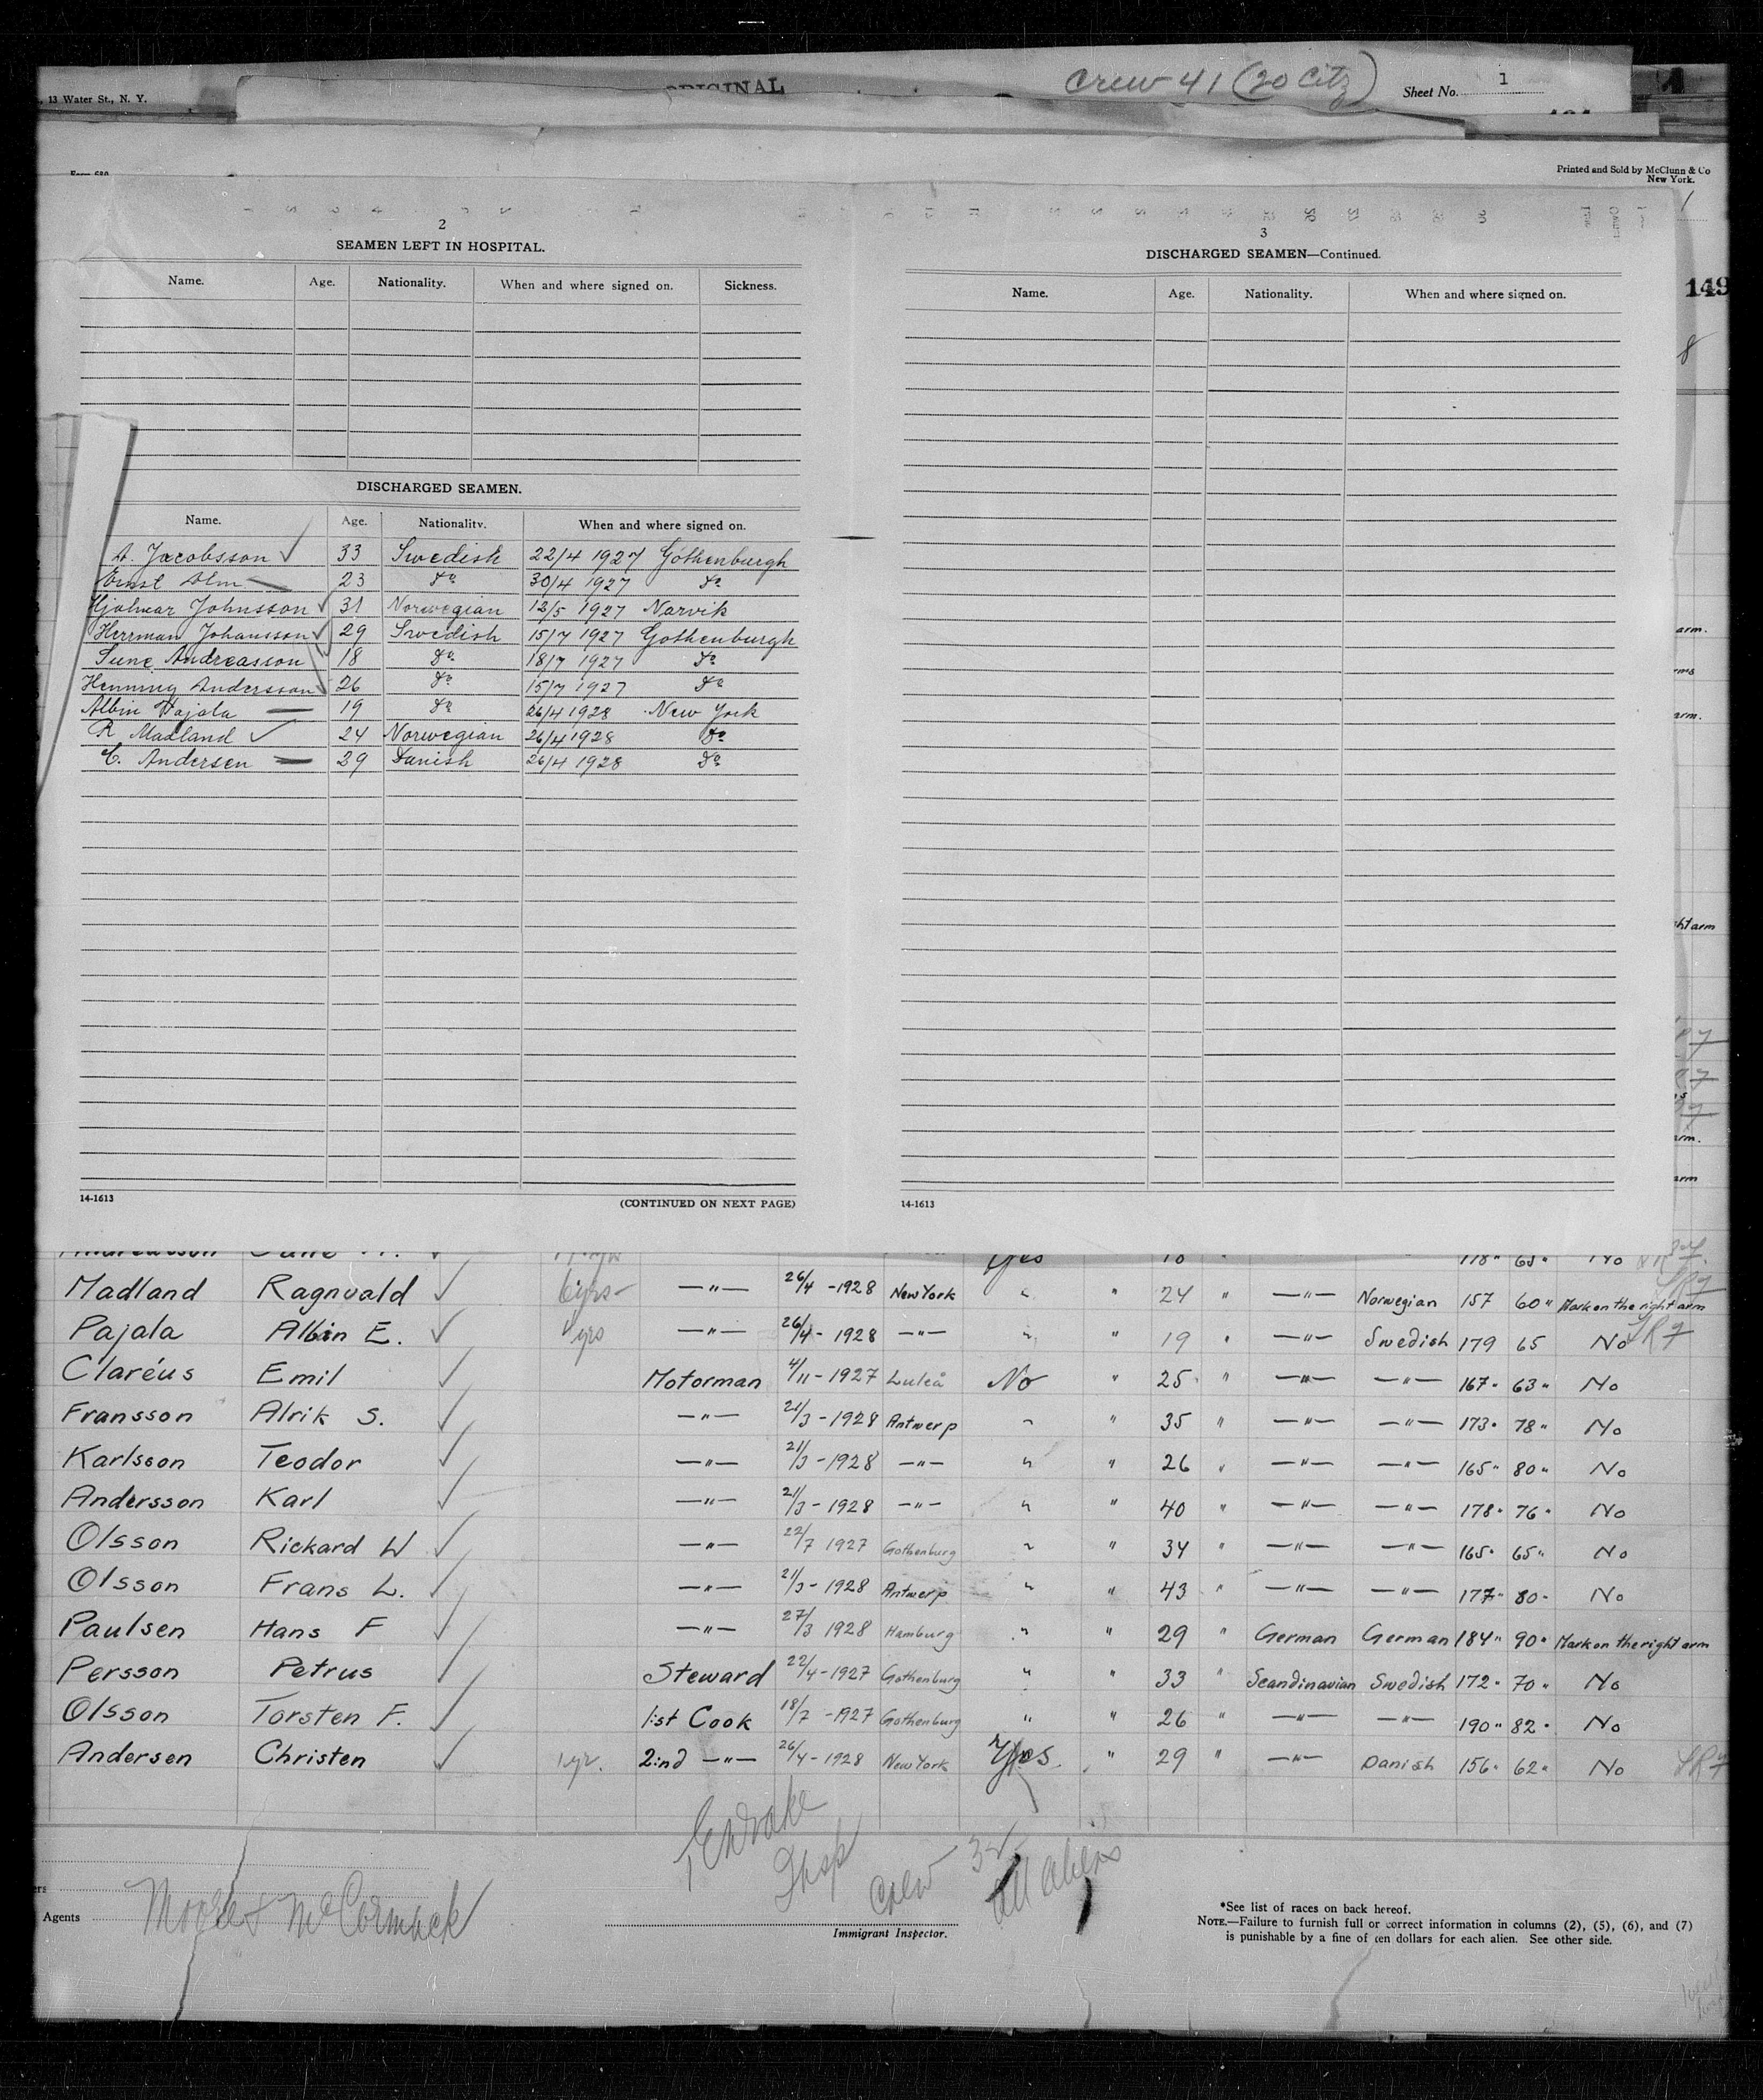 , 13 Water St., N. Y.
ORIGINAL
Crew 41 (20 Citz)
Sheet No. 1
Form 680
Printed and Sold by McClunn & Co
New York.
149
8
2
SEAMEN LEFT IN HOSPITAL.
Name. Age. Nationality. When and where signed on. Sickness.
DISCHARGED SEAMEN.
Name. Age. Nationality. When and where signed on.
A. Jacobsson ✓ 33 Swedish 22/4 1927 Gothenburgh
Ernst Alm — 23 Do 30/4 1927 Do
Hjalmar Johnsson ✓ 31 Norwegian 12/5 1927 Narvik
Herrman Johansson ✓ 29 Swedish 15/7 1927 Gothenburgh
Sune Andreasson 18 Do 18/7 1927 Do
Henning Andersson 26 Do 15/7 1927 Do
Albin Pajala — 19 Do 26/4 1928 New York
R Madland ✓ 24 Norwegian 26/4 1928 Do
C. Andersen — 29 Danish 26/4 1928 Do
14-1613
(CONTINUED ON NEXT PAGE)
3
DISCHARGED SEAMEN—Continued.
Name. Age. Nationality. When and where signed on.
14-1613
arm.
arm.
ht arm
arm.
arm
Andreasson Sune Yes 18 178 " 65 " No
Madland Ragnvald ✓ 6 yrs — " — 26/4 - 1928 New York " " 24 " — " — Norwegian 157 60 " Mark on the right arm
Pajala Albin E. ✓ yrs — " — 26/4 - 1928 — " — " " 19 " — " — Swedish 179 65 No
Claréus Emil ✓ Motorman 4/11 - 1927 Luleå No " 25 " — " — — " — 167 " 63 " No
Fransson Alrik S. ✓ — " — 21/3 - 1928 Antwerp " " 35 " — " — — " — 173 " 78 " No
Karlsson Teodor ✓ — " — 21/3 - 1928 — " — " " 26 " — " — — " — 165 " 80 " No
Andersson Karl ✓ — " — 21/3 - 1928 — " — " " 40 " — " — — " — 178 " 76 " No
Olsson Rickard W ✓ — " — 22/7 1927 Gothenburg " " 34 " — " — — " — 165 " 65 " No
Olsson Frans L. ✓ — " — 21/3 - 1928 Antwerp " " 43 " — " — — " — 177 " 80 " No
Paulsen Hans F ✓ — " — 27/3 1928 Hamburg " " 29 " German German 184 " 90 " Mark on the right arm
Persson Petrus ✓ Steward 22/4 - 1927 Gothenburg " " 33 " Scandinavian Swedish 172 " 70 " No
Olsson Torsten F. ✓ 1:st Cook 18/7 - 1927 Gothenburg " " 26 " — " — — " — 190 " 82 " No
Andersen Christen ✓ 1 yr. 2:nd — " — 26/4 - 1928 New York Yes " 29 " — " — Danish 156 " 62 " No
Insp
Crew 32
all aliens
Agents Moore & McCormack
Immigrant Inspector.
*See list of races on back hereof.
NOTE.—Failure to furnish full or correct information in columns (2), (5), (6), and (7)
is punishable by a fine of ten dollars for each alien. See other side.